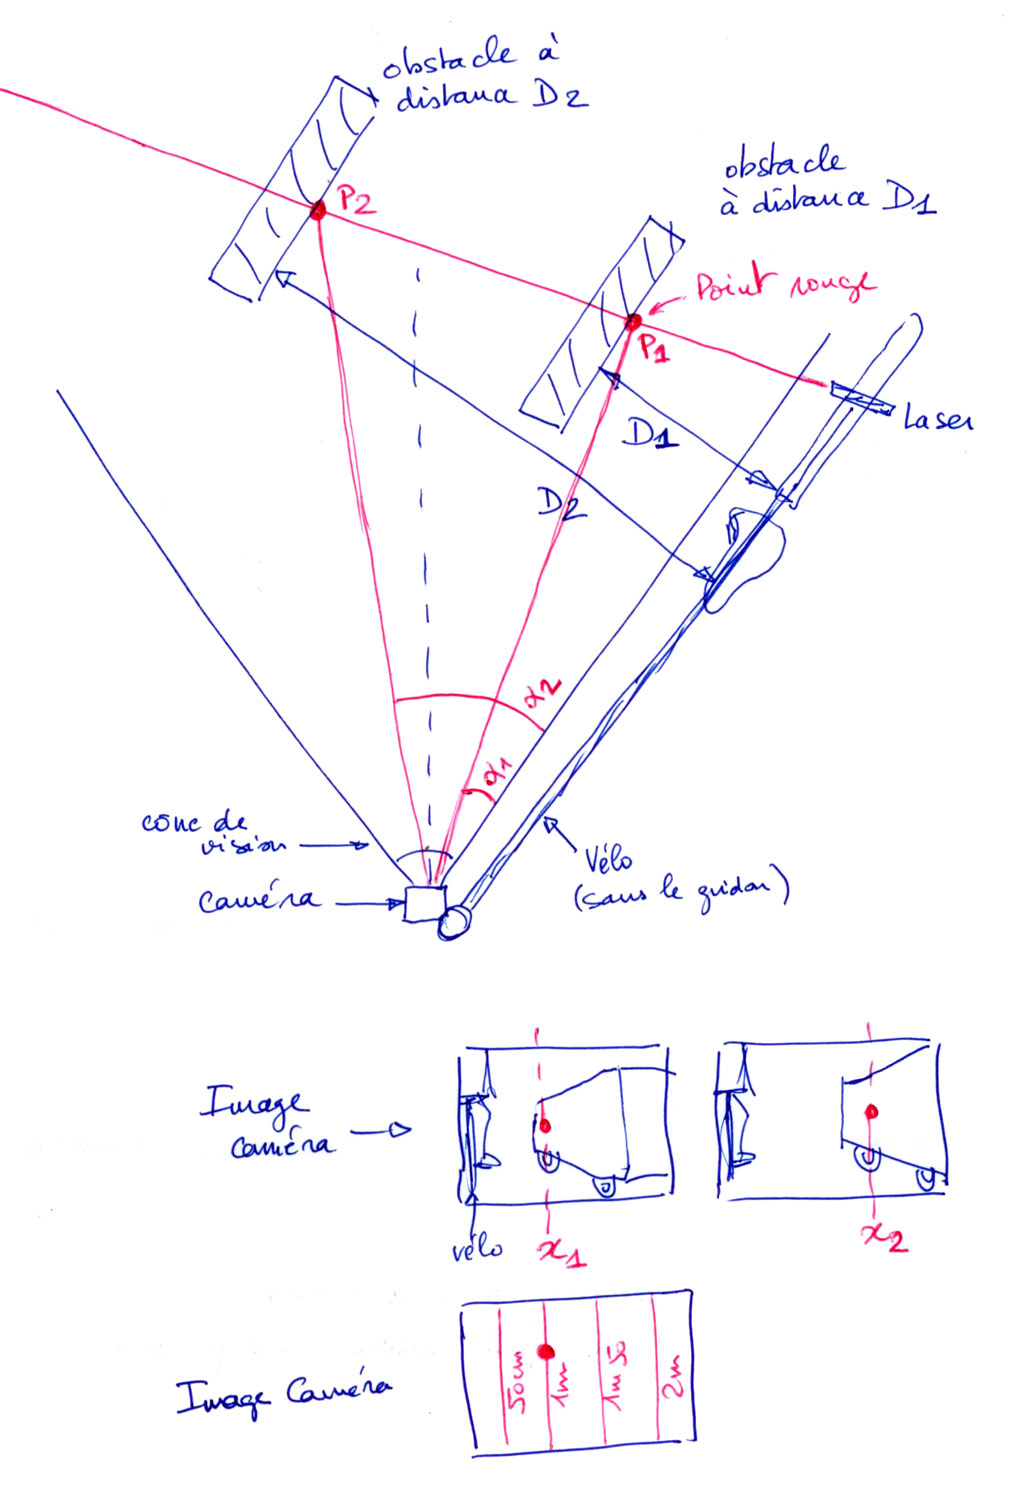 obstacle à
distance D2
obstacle
à distance D1
P2
Point rouge
P1
Laser
D1
D2
α2
α1
cône de
vision
caméra
Vélo
(sans le guidon)
Image
caméra
vélo
x1
x2
Image Caméra
50cm
1m
1m50
2m